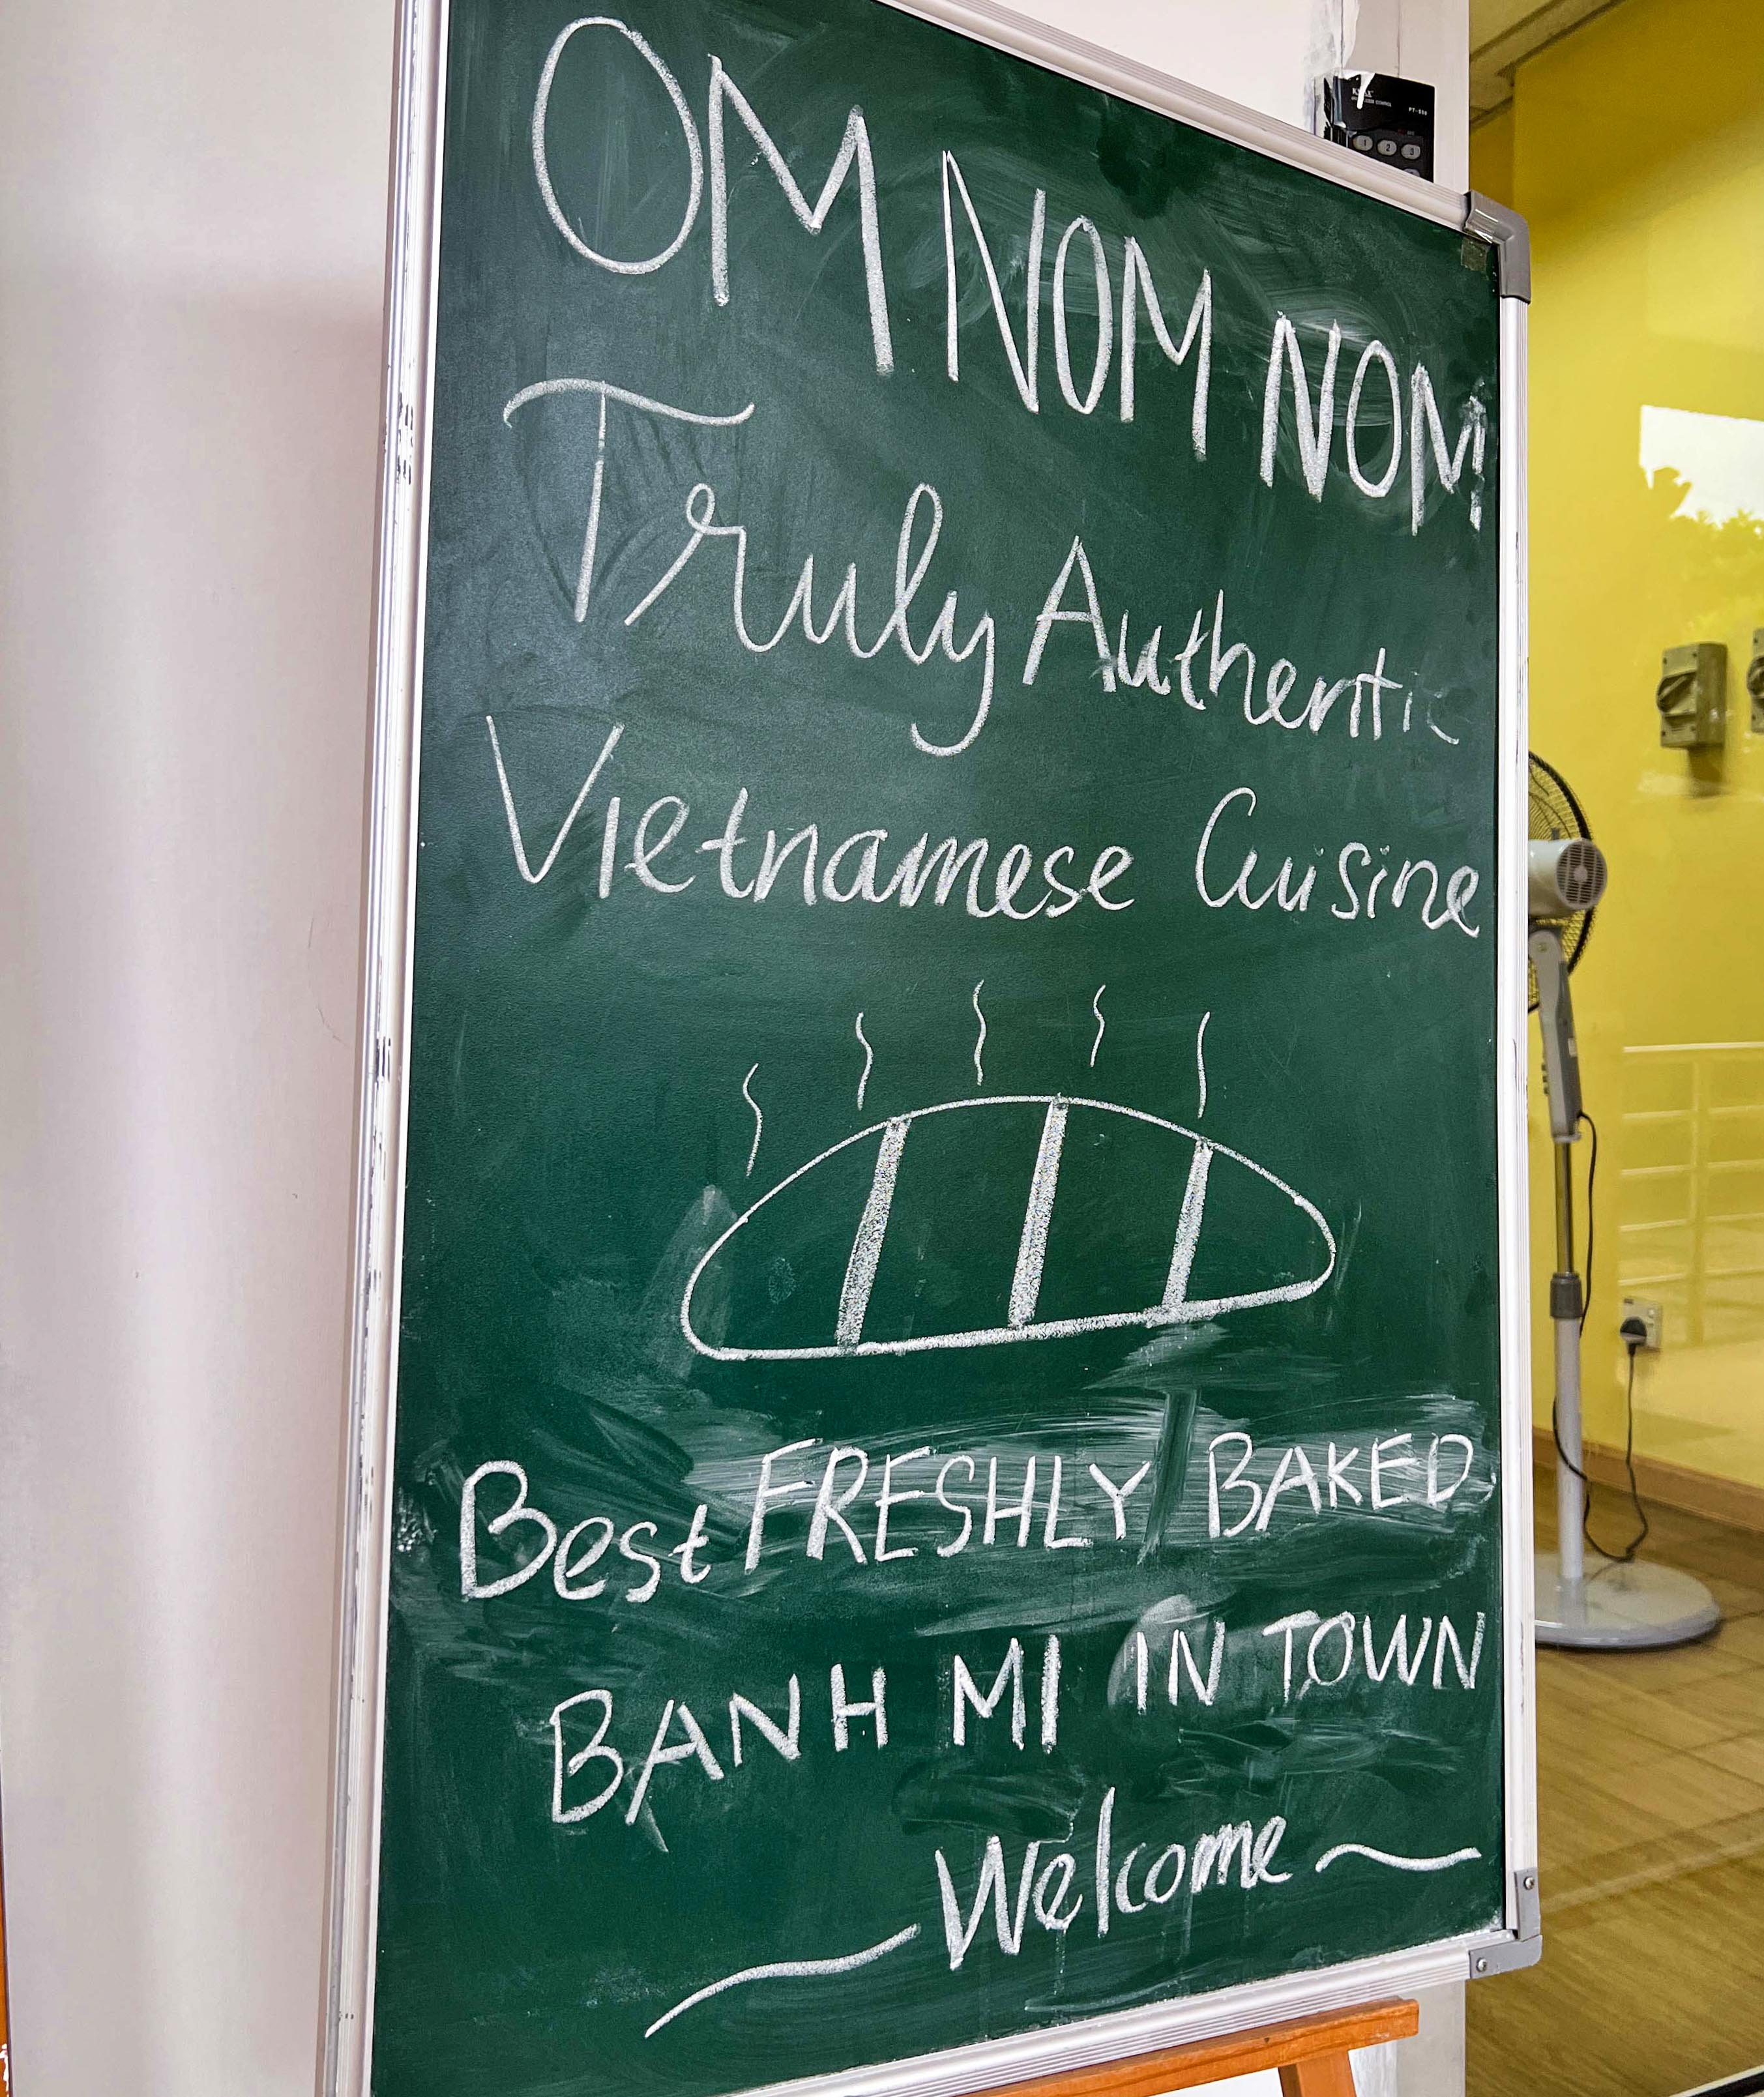 OM NOM NOM!
Truly Authentic
Vietnamese Cuisine
Best FRESHLY BAKED
BANH MI IN TOWN
Welcome
1 2 3